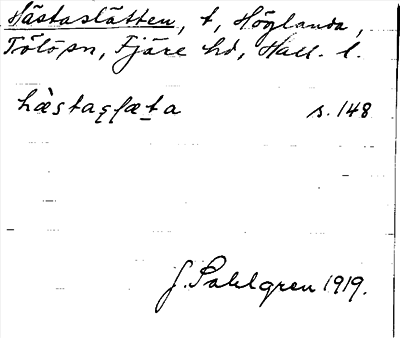 Hästaslätten, t, Höglanda,
Tölö sn, Fjäre hd, Hall. l.
hæ̀ʂtaʂʂlæta s. 148
J. Sahlgren 1919.